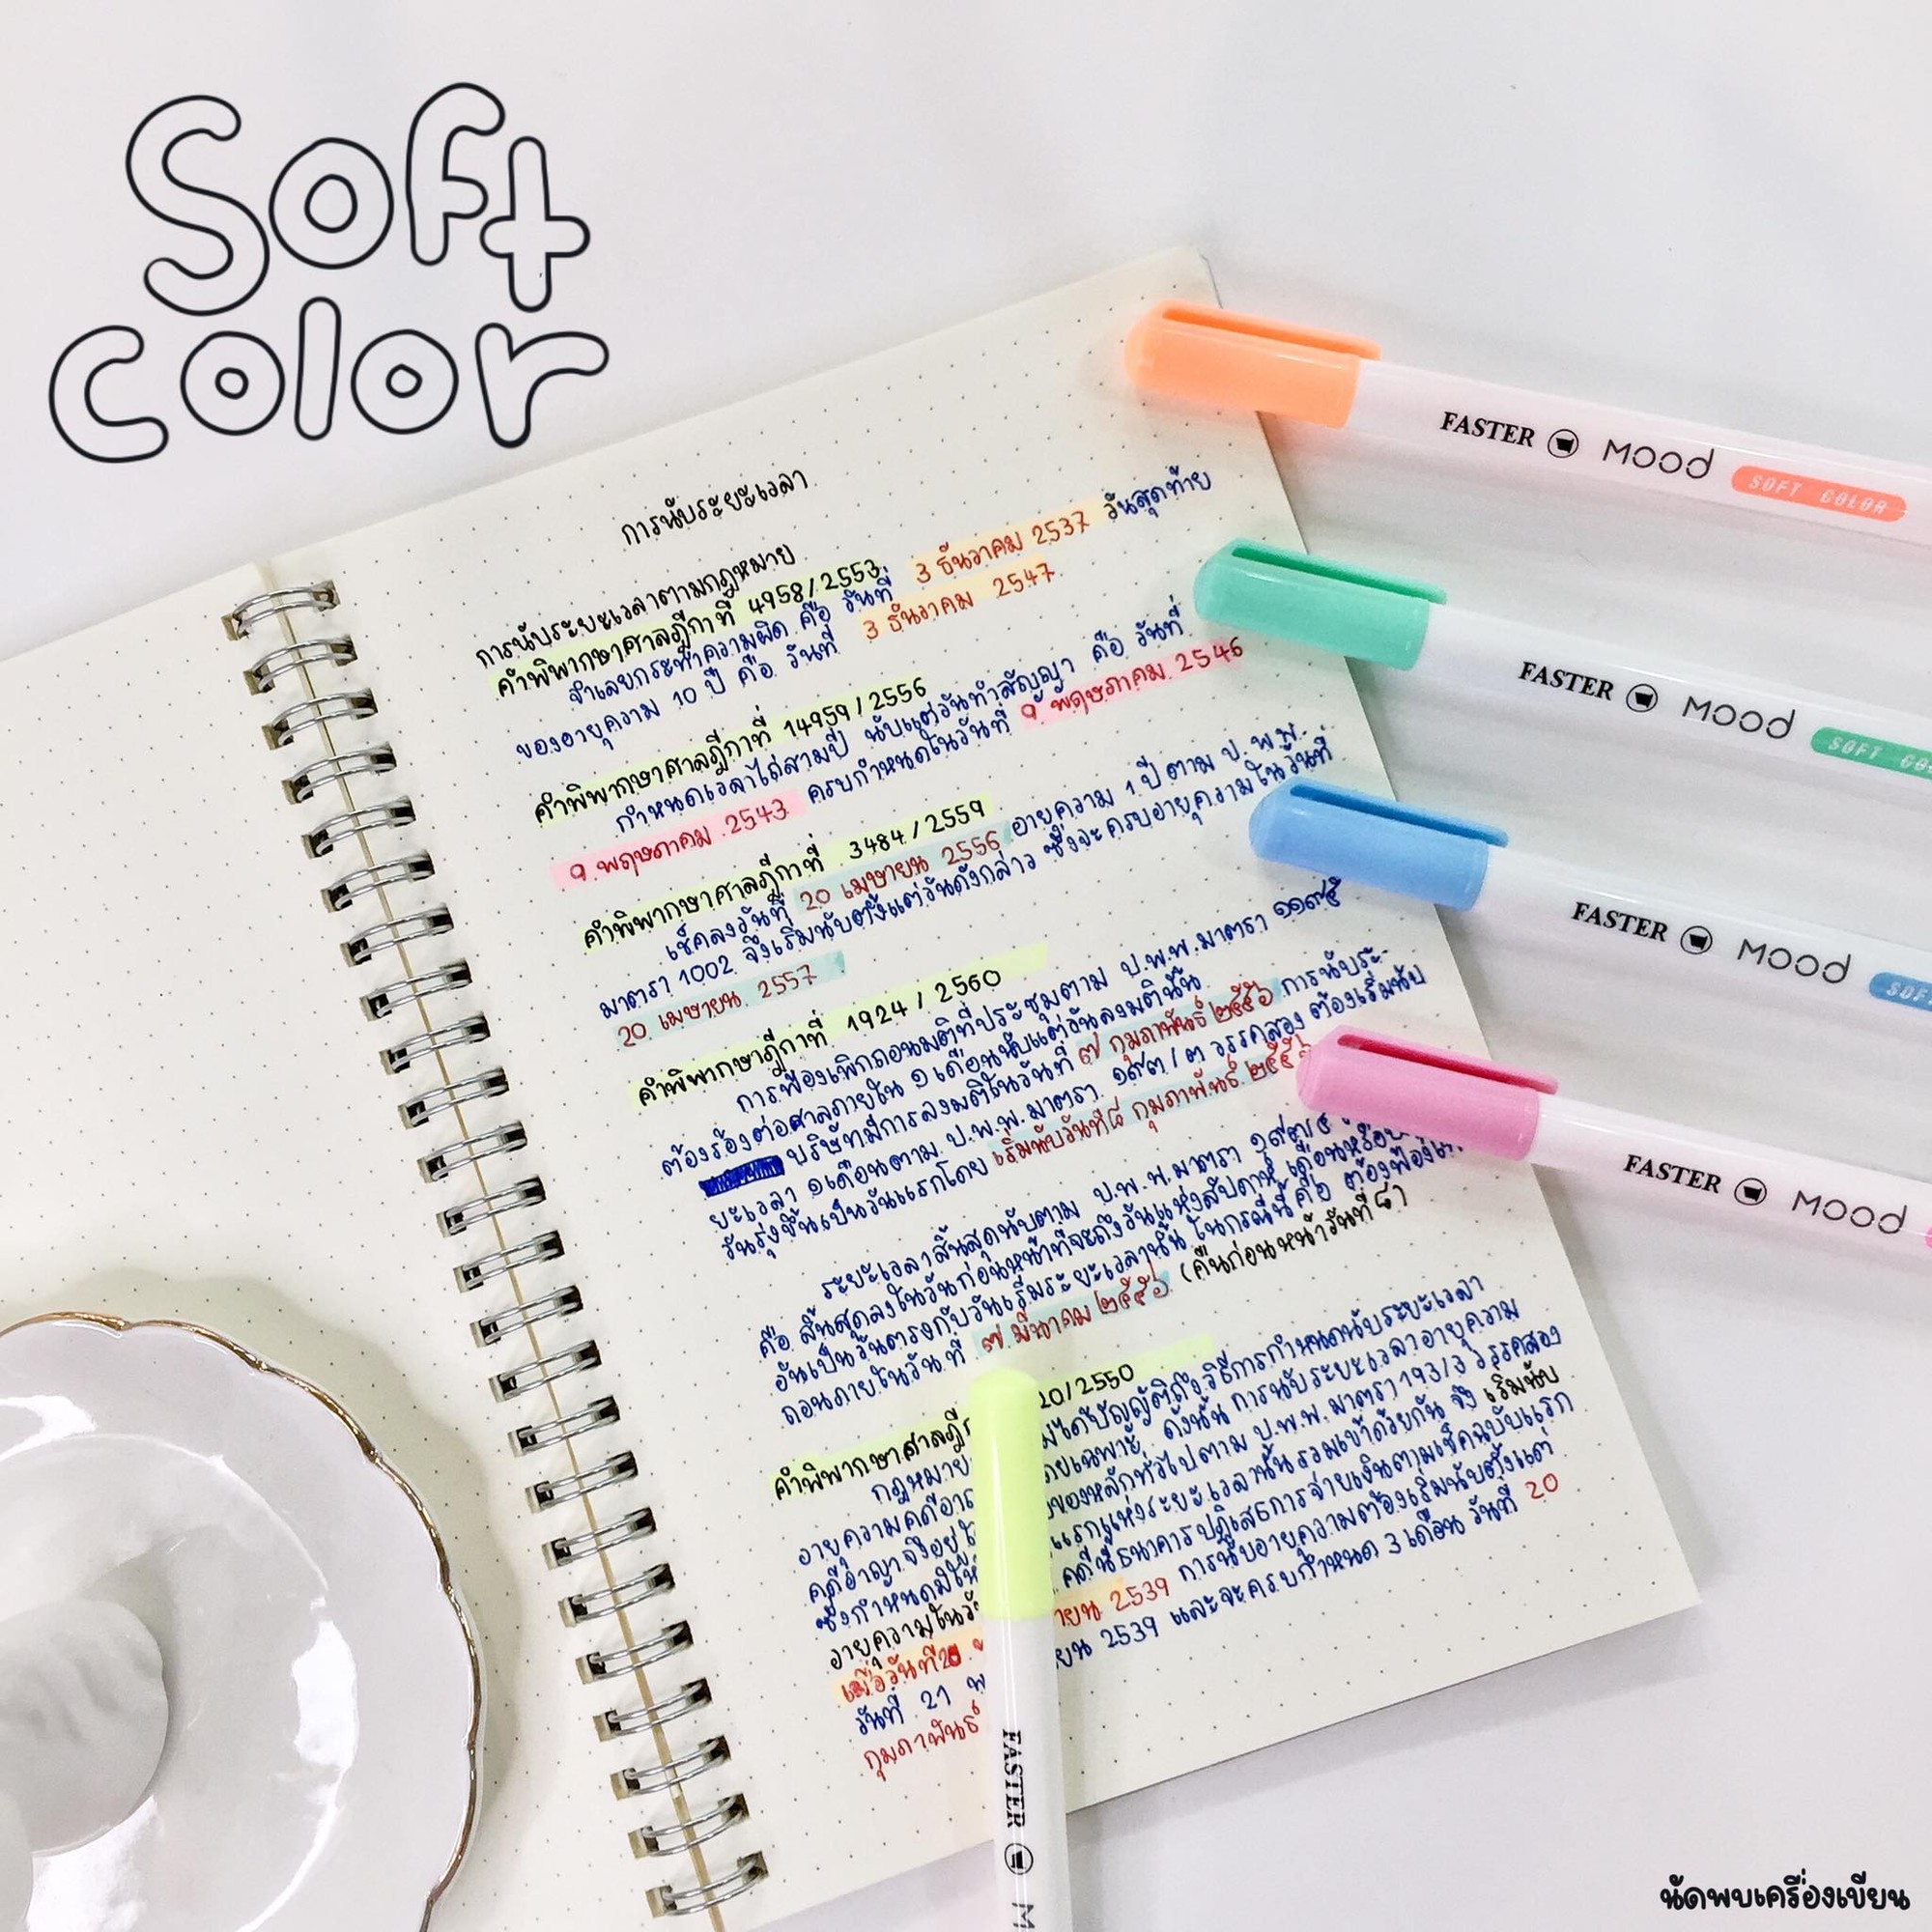 Soft
color
การนับระยะเวลา
การนับระยะเวลาตามกฎหมาย
คำพิพากษาศาลฎีกาที่ 4958/2553
จำเลยกระทำความผิด คือ วันที่ 3 ธันวาคม 2537 วันสุดท้าย
ของอายุความ 10 ปี คือ วันที่ 3 ธันวาคม 2547
คำพิพากษาศาลฎีกาที่ 14959/2556
กำหนดเวลาไถ่สามปี นับแต่วันทำสัญญา คือ วันที่
9 พฤษภาคม 2543 ครบกำหนดในวันที่ 9 พฤษภาคม 2546
คำพิพากษาศาลฎีกาที่ 3484/2559
เช็คลงวันที่ 20 เมษายน 2556 อายุความ 1 ปี ตาม ป.พ.พ.
มาตรา 1002 จึงเริ่มนับตั้งแต่วันดังกล่าว ซึ่งจะครบอายุความในวันที่
20 เมษายน 2557
คำพิพากษาฎีกาที่ 1924/2560
การฟ้องเพิกถอนมติที่ประชุมตาม ป.พ.พ.มาตรา ๑๑๙๕
ต้องร้องต่อศาลภายใน ๑ เดือนนับแต่วันลงมตินั้น
บริษัทมีการลงมติในวันที่ ๗ กุมภาพันธ์ ๒๕๕๖ การนับระ-
ยะเวลา ๑ เดือนตาม ป.พ.พ.มาตรา ๑๙๓/๓ วรรคสอง ต้องเริ่มนับ
วันรุ่งขึ้นเป็นวันแรกโดย เริ่มนับวันที่ ๘ กุมภาพันธ์ ๒๕๕๖
ระยะเวลาสิ้นสุดนับตาม ป.พ.พ.มาตรา ๑๙๓/๕
คือ สิ้นสุดลงในวันก่อนหน้าที่จะถึงวันแห่งสัปดาห์ เดือนหรือ
อันเป็นวันตรงกับวันเริ่มระยะเวลานั้น ในกรณีนี้ คือ ต้องฟ้อง
ถอนภายในวันที่ ๗ มีนาคม ๒๕๕๖ (คืนก่อนหน้าวันที่ ๘)
คำพิพากษาศาลฎี 20/2550
กฎหมาย ไม่ได้บัญญัติถึงวิธีการกำหนดนับระยะเวลา
อายุความคดีอา โดยเฉพาะ ดังนั้น การนับระยะเวลาอายุความ
คดีอาญาจึงอยู่ใ ของหลักทั่วไปตาม ป.พ.พ.มาตรา 193/3 วรรคสอง
ซึ่งกำหนดมิให้ แรกแห่งระยะเวลานั้นรวมเข้าด้วยกัน จึง เริ่มนับ
อายุความในวั คดีนี้ธนาคารปฏิเสธการจ่ายเงินตามเช็คฉบับแรก
เมื่อวันที่ 20 ายน 2539 การนับอายุความต้องเริ่มนับตั้งแต่
วันที่ 21 พ ยน 2539 และจะครบกำหนด 3 เดือน วันที่ 20
กุมภาพันธ์
FASTER Mood SOFT COLOR
FASTER Mood SOFT CO
FASTER Mood SOF
FASTER Mood
FASTER M
นัดพบเครื่องเขียน